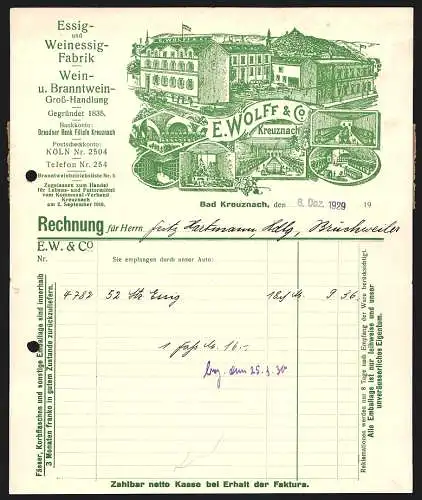 Essig-
und
Weinessig-
Fabrik
Wein-
u. Branntwein-
Groß-Handlung
Gegründet 1835,
Bankkonto:
Dresdner Bank Filiale Kreuznach
Postscheckkonto:
KÖLN Nr. 2504
Telefon Nr. 254
Branntweinbetriebsliste Nr. 5
Zugelassen zum Handel
für Lebens- und Futtermittel
vom Kommunal-Verband
Kreuznach
am 2. September 1916.
E. WOLFF & Co
Kreuznach
Bad Kreuznach, den 6. Dez. 1929 19
Rechnung für Herrn Fritz Hartmann, Hdlg, Bruchweiler
E.W. & Co
Nr. Sie empfangen durch unser Auto:
4782 52 Ltr Essig 18 M. 9.36
1 Faß M. 16.-
bez. den 25.1.30
Fässer, Korbflaschen und sonstige Emballage sind innerhalb
3 Monaten franko in gutem Zustande zurückzuliefern.
Reklamationen werden nur 8 Tage nach Empfang der Ware berücksichtigt.
Alle Emballage ist nur leihweise und unser
unveräusserliches Eigentum.
Zahlbar netto Kasse bei Erhalt der Faktura.